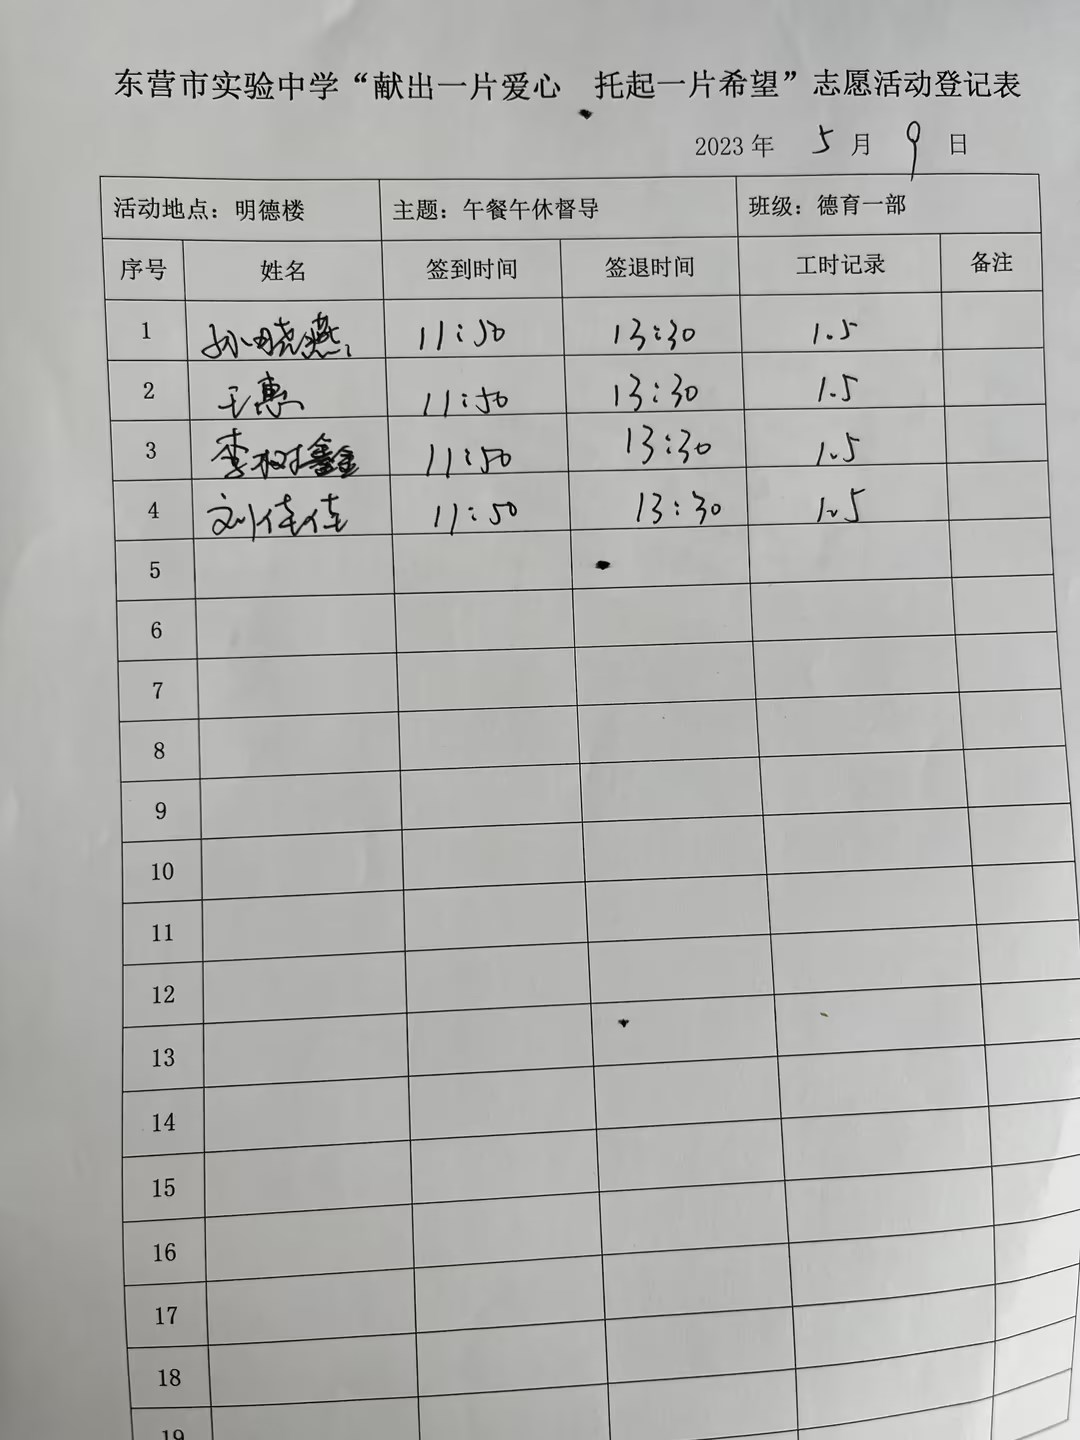 东营市实验中学“献出一片爱心 托起一片希望”志愿活动登记表
2023 年 5 月 9 日
活动地点：明德楼 主题：午餐午休督导 班级：德育一部
序号 姓名 签到时间 签退时间 工时记录 备注
1 孙晓燕 11:50 13:30 1.5
2 王惠 11:50 13:30 1.5
3 李树鑫 11:50 13:30 1.5
4 刘佳佳 11:50 13:30 1.5
5
6
7
8
9
10
11
12
13
14
15
16
17
18
19